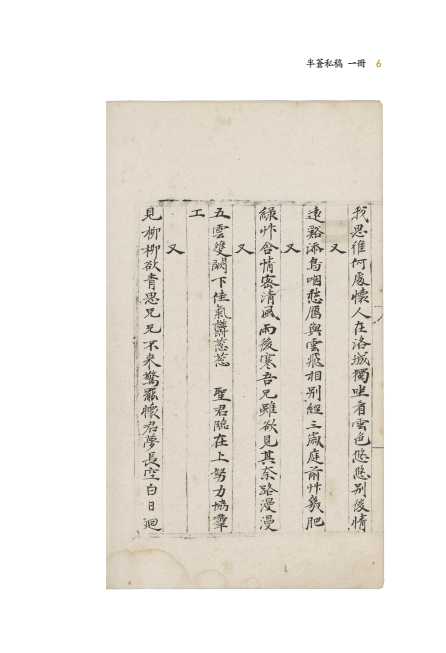 半蒼私稿 一冊 6
我思維何處懷人在洛城獨坐看雲色悠悠別後情
又
遠谿添鳥咽愁鴈與雲飛相別經三歲庭前艸幾肥
又
綠艸含情密淸風雨後寒吾兄雖欲見其奈路漫漫
又
五雲雙闕下佳氣鬱葱葱 聖君臨在上努力協羣
工
又
見柳柳欲青思兄兄不來驚罷懷君夢長空白日迴